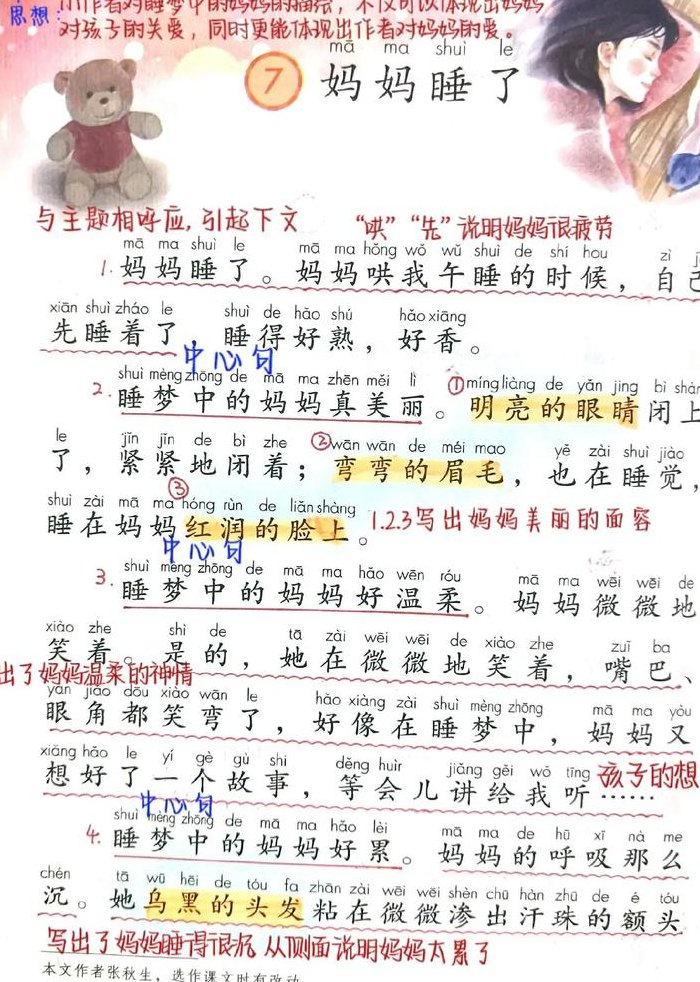 思想：小作者对睡梦中的妈妈的描绘，不仅可以体现出妈妈
对孩子的关爱，同时更能体现出作者对妈妈的爱。
mā ma shuì le
7 妈妈睡了
与主题相呼应，引起下文 “哄”“先”说明妈妈很疲劳
mā ma shuì le mā ma hǒng wǒ wǔ shuì de shí hou zì
1. 妈妈睡了。妈妈哄我午睡的时候，自己
xiān shuì zháo le shuì de hǎo shú hǎo xiāng
先睡着了，睡得好熟，好香。
中心句
shuì mèng zhōng de mā ma zhēn měi lì ① míng liàng de yǎn jing bì shàng
2. 睡梦中的妈妈真美丽。明亮的眼睛闭上
le jǐn jǐn de bì zhe ② wān wān de méi mao yě zài shuì jiào
了，紧紧地闭着；弯弯的眉毛，也在睡觉，
③
shuì zài mā ma hóng rùn de liǎn shàng
睡在妈妈红润的脸上。 1.2.3写出妈妈美丽的面容
中心句
shuì mèng zhōng de mā ma hǎo wēn róu mā ma wēi wēi de
3. 睡梦中的妈妈好温柔。妈妈微微地
xiào zhe shì de tā zài wēi wēi de xiào zhe zuǐ ba
笑着。是的，她在微微地笑着，嘴巴、
出了妈妈温柔的神情
yǎn jiǎo dōu xiào wān le hǎo xiàng zài shuì mèng zhōng mā ma yòu
眼角都笑弯了，好像在睡梦中，妈妈又
xiǎng hǎo le yí gè gù shi děng huìr jiǎng gěi wǒ tīng 孩子的想
想好了一个故事，等会儿讲给我听……
中心句
shuì mèng zhōng de mā ma hǎo lèi mā ma de hū xī nà me
4. 睡梦中的妈妈好累。妈妈的呼吸那么
chén tā wū hēi de tóu fa zhān zài wēi wēi shèn chū hàn zhū de é tóu
沉。她乌黑的头发粘在微微渗出汗珠的额头
写出了妈妈睡得很沉，从侧面说明妈妈太累了
本文作者张秋生，选作课文时有改动。